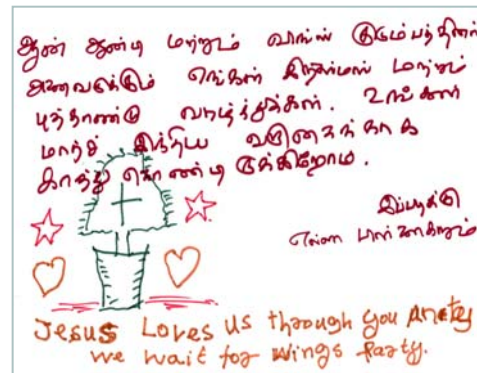 ஆன் ஆன்டி மற்றும் வாங்ஸ் குடும்பத்தினர்
அனைவருக்கும் எங்கள் கிறிஸ்மஸ் மற்றும்
புத்தாண்டு வாழ்த்துக்கள். உங்கள்
மார்ச் இந்திய வருகைக்காக
காத்து கொண்டிருக்கிறோம்.
இப்படிக்கு
எல்லா
Jesus Loves us through you
we wait for wings party.